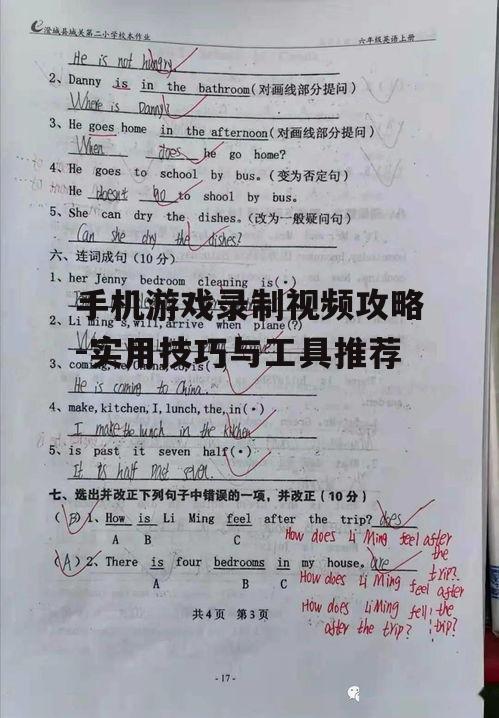 澄城县城关第二小学校本作业 六年级英语上册
He is not hungry.
2、Danny is in the bathroom(对画线部分提问)
Where is Danny?
3、He goes home in the afternoon(对画线部分提问)
When does he go home?
4、He goes to school by bus.(变为否定句)
He doesn't go to shool by bus.
5、She can dry the dishes.(改为一般疑问句)
Can she dry the dishes?
六、连词成句(10分)
1、her Jenny bedroom cleaning is(·)
手机游戏录制视频攻略
2、Li Ming's,will,arrive when plane(?)
-实用技巧与工具推荐
3、coming,
He is coming to China.
4、make,kitchen,I,lunch,the,in(·)
I make the lunch in the kitchen
5、is past it seven half(·)
It is half past seven.
七、选出并改正下列句子中错误的一项,并改正(10分)
(B)1、How is Li Ming feel after the trip? does
A B C
How does Li Ming feel after the trip?
(A)2、There is four bedrooms in my house. are
A B C
How does Li Ming feel after the trip?
How does Li Ming fell after the trip?
共4页 第3页
-17-